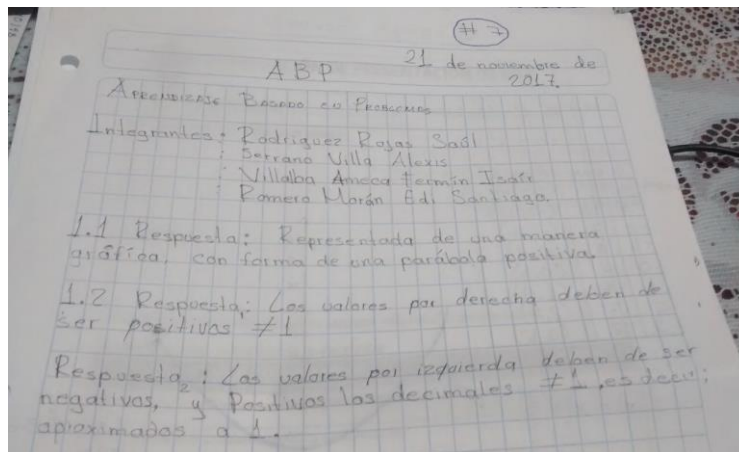 # 7
21 de noviembre de
2017.
ABP
Aprendizaje Basado en Problemas
Integrantes: Rodriguez Rojas Saúl
: Serrano Villa Alexis
: Villalba Ameca Fermín Isaír
: Romero Morán Edi Santiago.
1.1 Respuesta: Representada de una manera
gráfica, con forma de una parábola positiva.
1.2 Respuesta1: Los valores por derecha deben de
ser positivos, ≠1
Respuesta2: Los valores por izquierda deben de ser
negativos, y Positivos los decimales ≠1, es decir;
aproximados a 1.